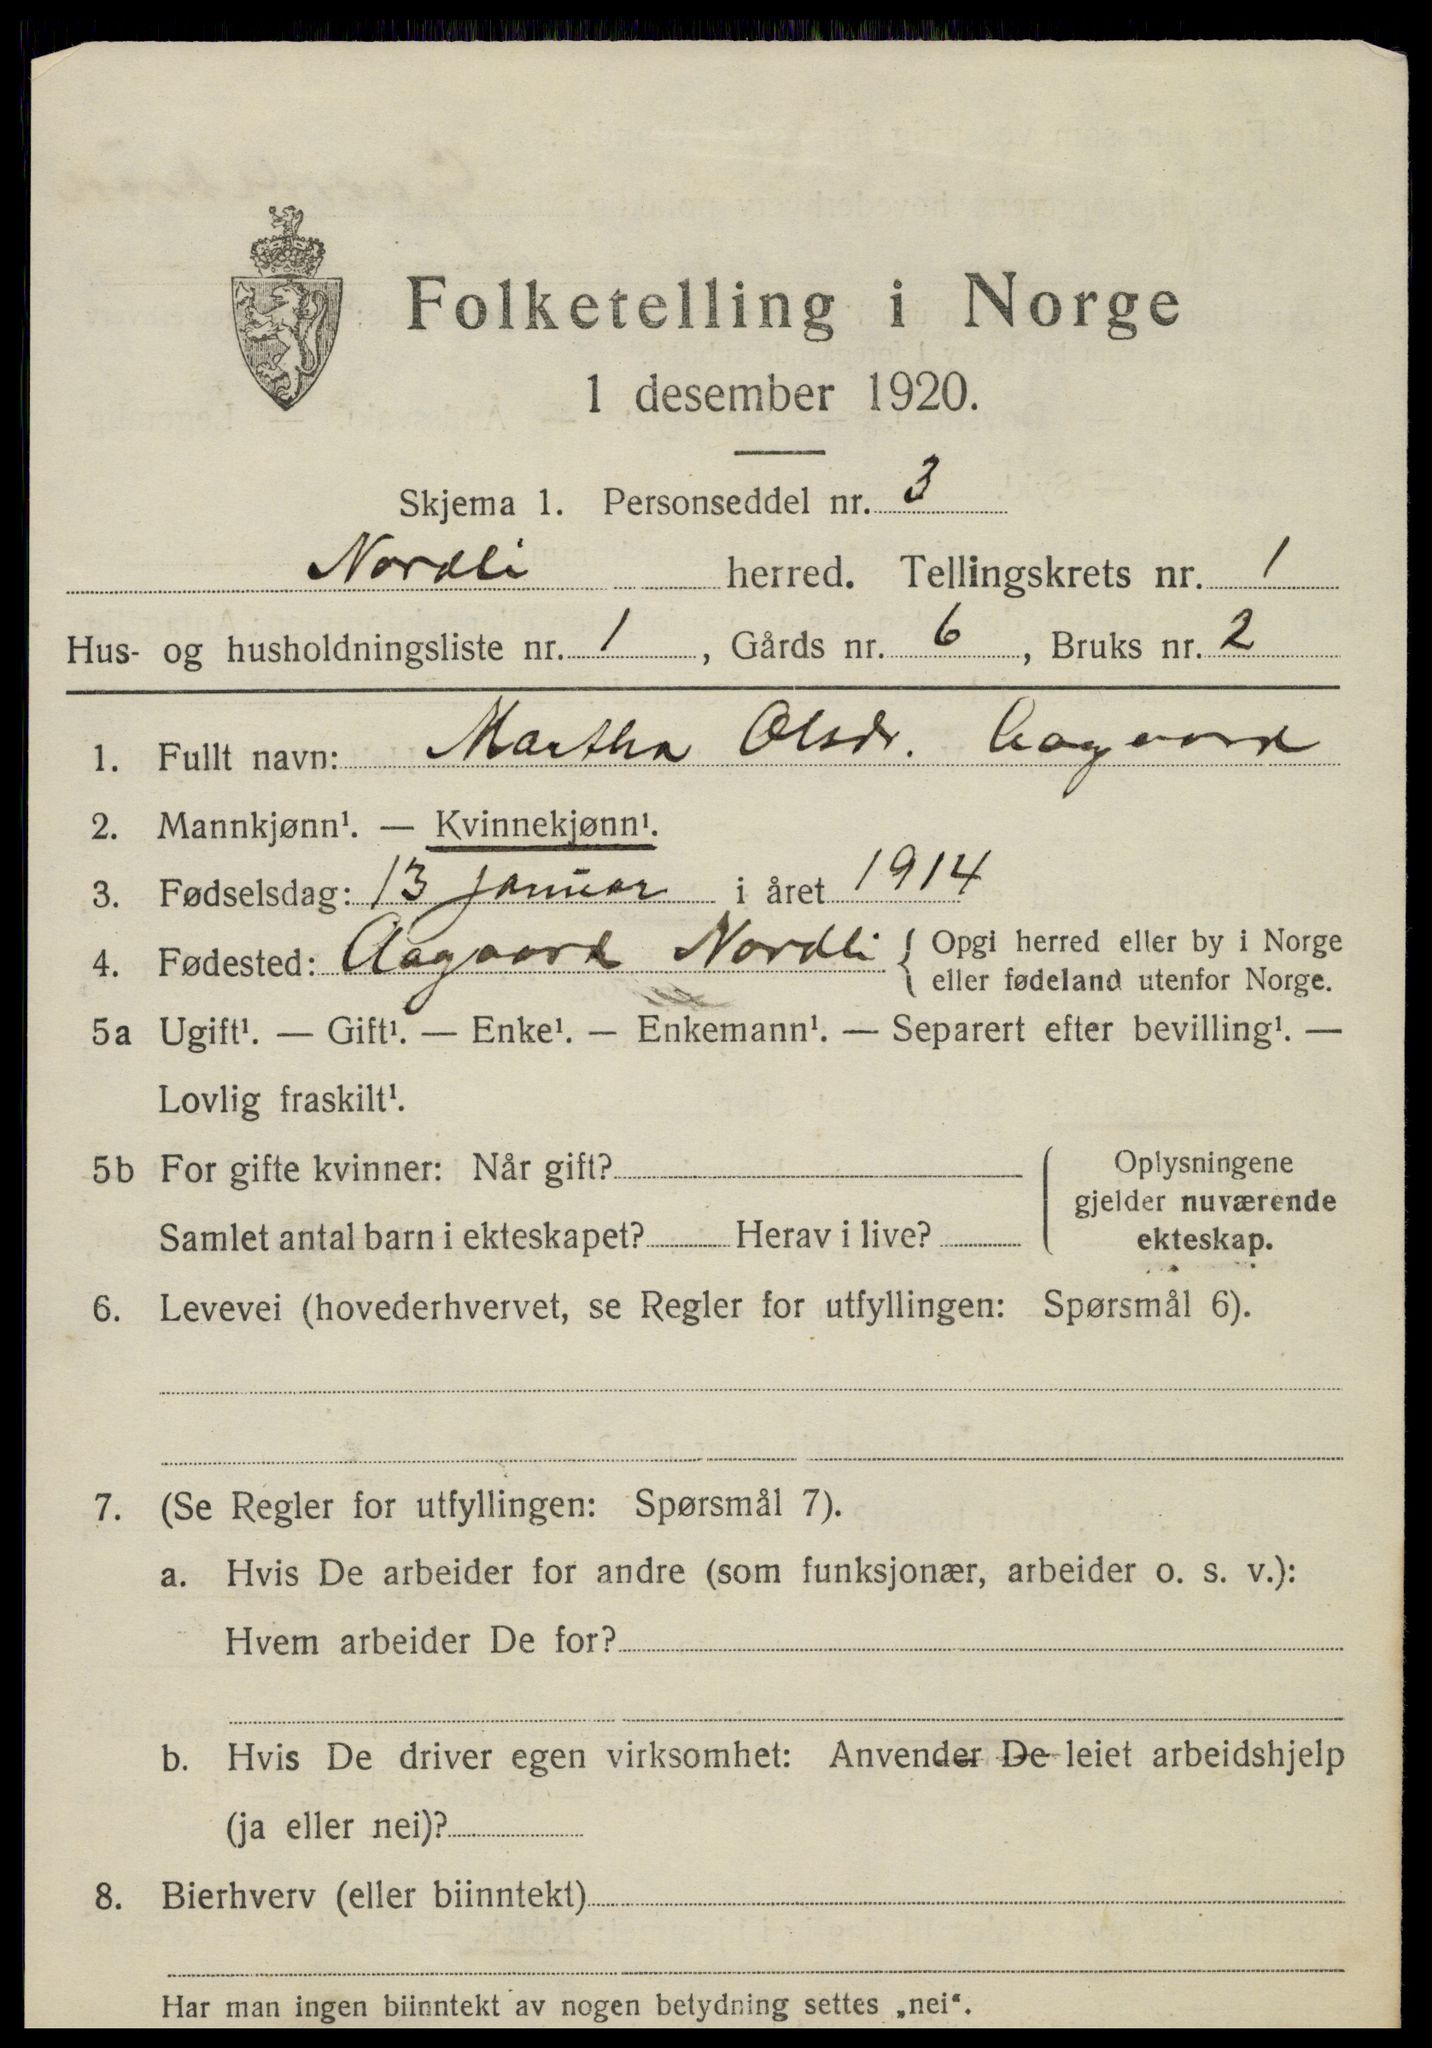 Folketelling i Norge
1 desember 1920.
Skjema 1. Personseddel nr. 3
Nordli herred. Tellingskrets nr. 1
Hus- og husholdningsliste nr. 1, Gårds nr. 6, Bruks nr. 2
1. Fullt navn: Martha Olsdr. Aagaard
2. Mannkjønn¹. — Kvinnekjønn¹.
3. Fødselsdag: 13 januar i året 1914
4. Fødested: Aagaard Nordli { Opgi herred eller by i Norge
eller fødeland utenfor Norge.
5a Ugift¹. — Gift¹. — Enke¹. — Enkemann¹. — Separert efter bevilling¹. —
Lovlig fraskilt¹.
5b For gifte kvinner: Når gift?
Samlet antal barn i ekteskapet? Herav i live?
Oplysningene
gjelder nuværende
ekteskap.
6. Levevei (hovederhvervet, se Regler for utfyllingen: Spørsmål 6).
7. (Se Regler for utfyllingen: Spørsmål 7).
a. Hvis De arbeider for andre (som funksjonær, arbeider o. s. v.):
Hvem arbeider De for?
b. Hvis De driver egen virksomhet: Anvender De leiet arbeidshjelp
(ja eller nei)?
8. Bierhverv (eller biinntekt)
Har man ingen biinntekt av nogen betydning settes „nei“.